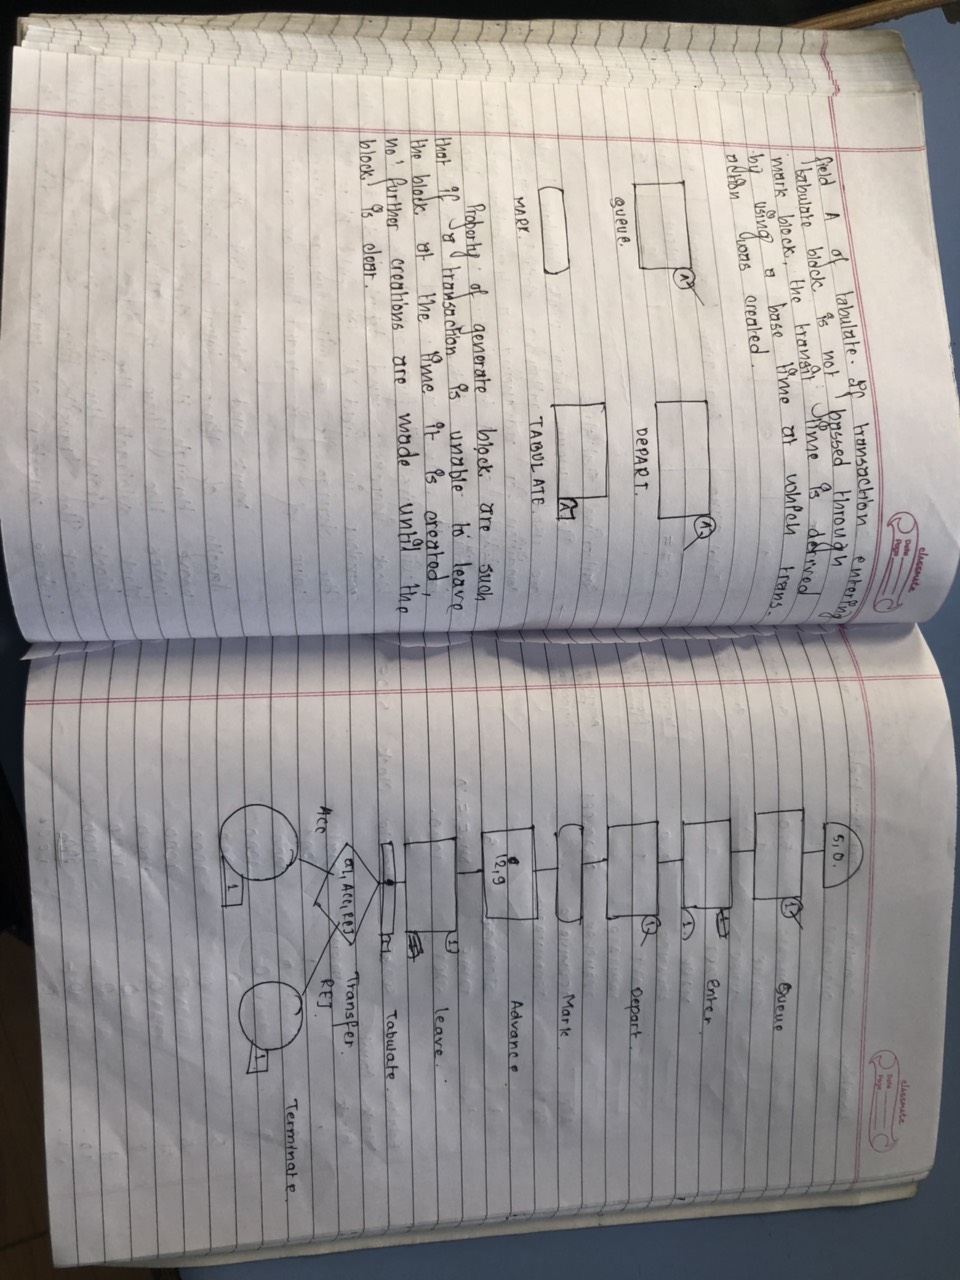 classmate
Date
Page
field A of tabulate. If transaction entering
tabulate block is not passed through
mark block, the transit time is derived
by using a base time at which trans.
action was created.
A
A
QUEUE.
DEPART.
A
MARK.
TABULATE
Property of generate block are such
that if a transaction is unable to leave
the block at the time it is created,
no further creations are made until the
block is clear.
classmate
Date
Page
5,0.
1
Queue
1
Enter.
1
Depart.
Mark
12,9
Advance.
1
leave.
1
Tabulate.
.1, Acc, REJ
Transfer.
Acc
REJ.
1
1
Terminate.